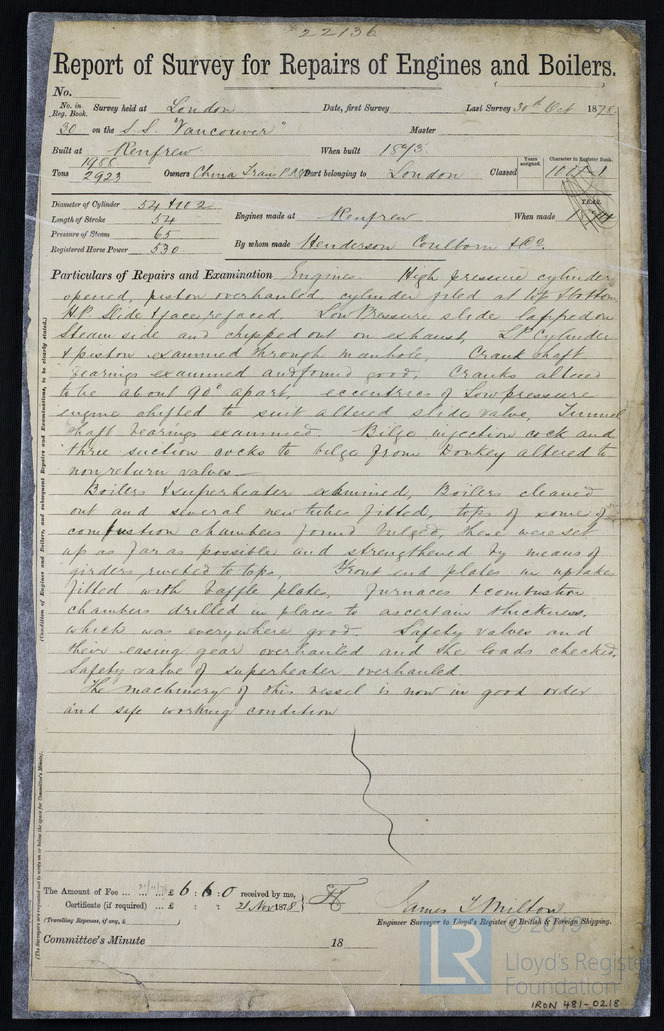 22136
Report of Survey for Repairs of Engines and Boilers.
No.
No. in Reg. Book. Survey held at London Date, first Survey Last Survey 30th Oct 1878
30 on the S.S. "Vancouver" Master
Built at Renfrew When built 1873
Tons 1988 2923 Owners China Trans Port belonging to London Classed Years assigned. Character in Register Book.
Diameter of Cylinder 54 & 102
Length of Stroke 54 Engines made at Renfrew When made YEAR.
Pressure of Steam 65
Registered Horse Power 530 By whom made Henderson Coulborn & Co.
Particulars of Repairs and Examination Engines. High pressure cylinder
opened, piston overhauled, cylinder filed at top & bottom
HP Slide & face refaced. Low Pressure slide lapped on
Steam side and chipped out on exhaust, LP Cylinder
& piston examined through manhole, Crank shaft
bearings examined and found good. Cranks altered
to be about 90° apart, eccentrics of Low pressure
engine shifted to suit altered slide valve, Tunnel
shaft bearings examined. Bilge injection cock and
three suction cocks to bilge from Donkey altered to
nonreturn valves
Boilers & superheater examined, Boilers cleaned
out and several new tubes fitted, tops of some of
combustion chambers found bulged, these were set
up as far as possible and strengthened by means of
girders riveted to tops, Front end plates in uptake
fitted with baffle plates, Furnaces & combustion
chambers drilled in places to ascertain thickness,
which was everywhere good. Safety valves and
their easing gear overhauled and the loads checked.
Safety valve of superheater overhauled
The machinery of this vessel is now in good order
and safe working condition
(Condition of Engines and Boilers, and subsequent Repairs and Examinations, to be clearly stated.)
(The Surveyors are requested not to write on or below the space for Committee's Minute).
The Amount of Fee ... £ 6 : 6 : 0 received by me,
Certificate (if required) ... £ : : 21 Nov 1878
(Travelling Expenses, if any, £ )
James T Milton
Engineer Surveyor to Lloyd's Register of British & Foreign Shipping.
Committee's Minute 18
LR
Lloyd's Register
Foundation
IRON 481-0218